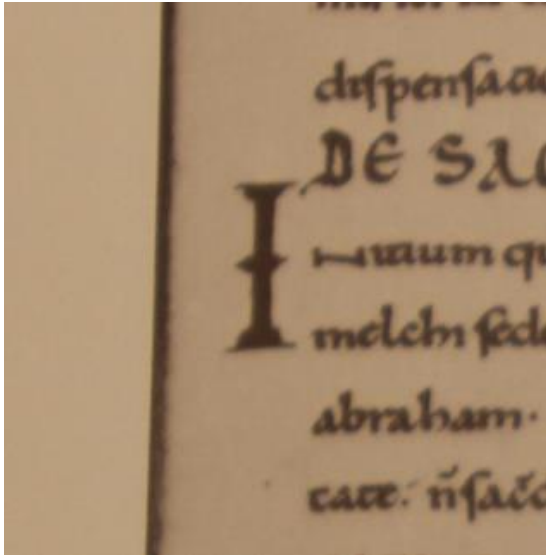 dispensa
DE SA
INitium qu
melchi sede
abraham.
tate. n̄ sac̄